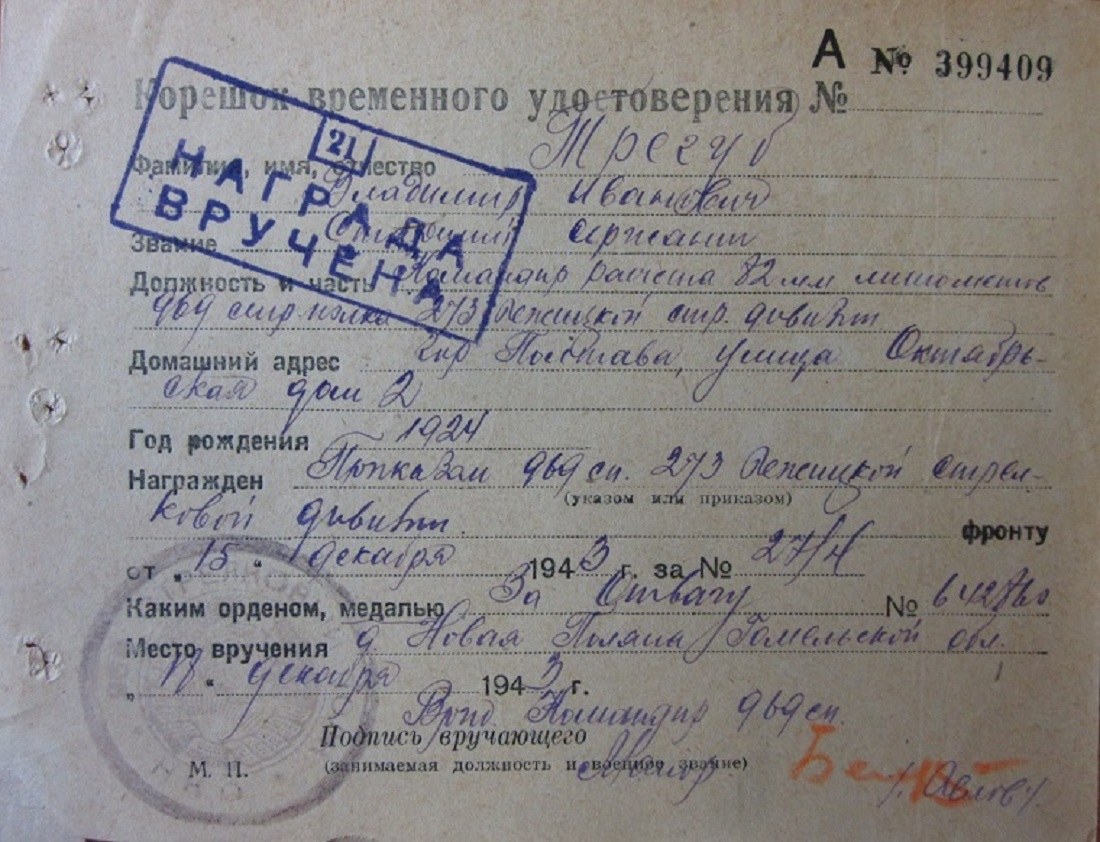 А № 399409
Корешок временного удостоверения №
21
НАГРАДА
ВРУЧЕНА
Фамилия, имя, отчество Трегуб
Владимир Иванович
Звание Старший сержант
Должность и часть Командир расчета 82 мм минометов
969 стр полка 273 Бежицкой стр. дивизии
Домашний адрес гор Полтава, улица Октябрь-
ская дом 2
Год рождения 1924
Награжден Приказом 969 сп. 273 Бежицкой стрел-
(указом или приказом)
ковой дивизии фронту
от „ 15 “ декабря 1943 г. за № 27/н
Каким орденом, медалью За Отвагу № 642780
Место вручения д. Новая Поляна Гомельской обл.
„ “ декабря 1943 г.
Командир 969 сп.
Подпись вручающего
(занимаемая должность и военное звание)
Майор
М. П.